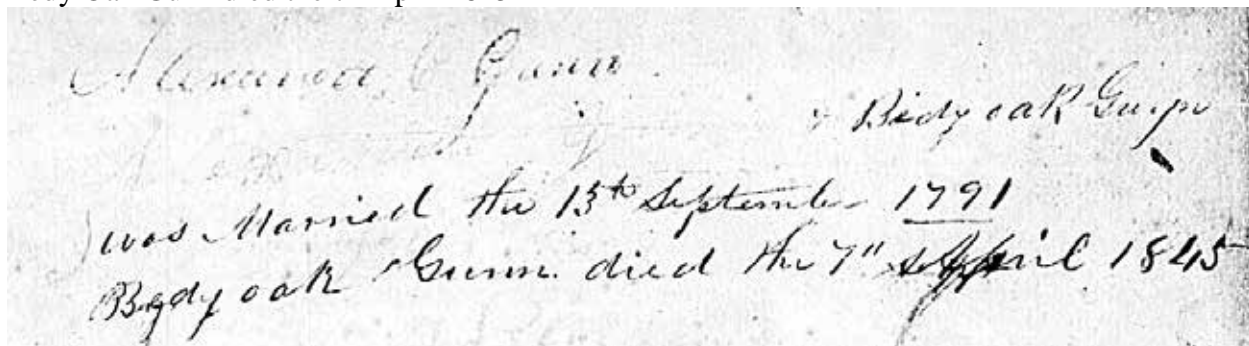 Alexander C Gunn
& Bidy oak Gunn
was Married the 13th September 1791
Bedy oak Gunn died the 7" April 1845